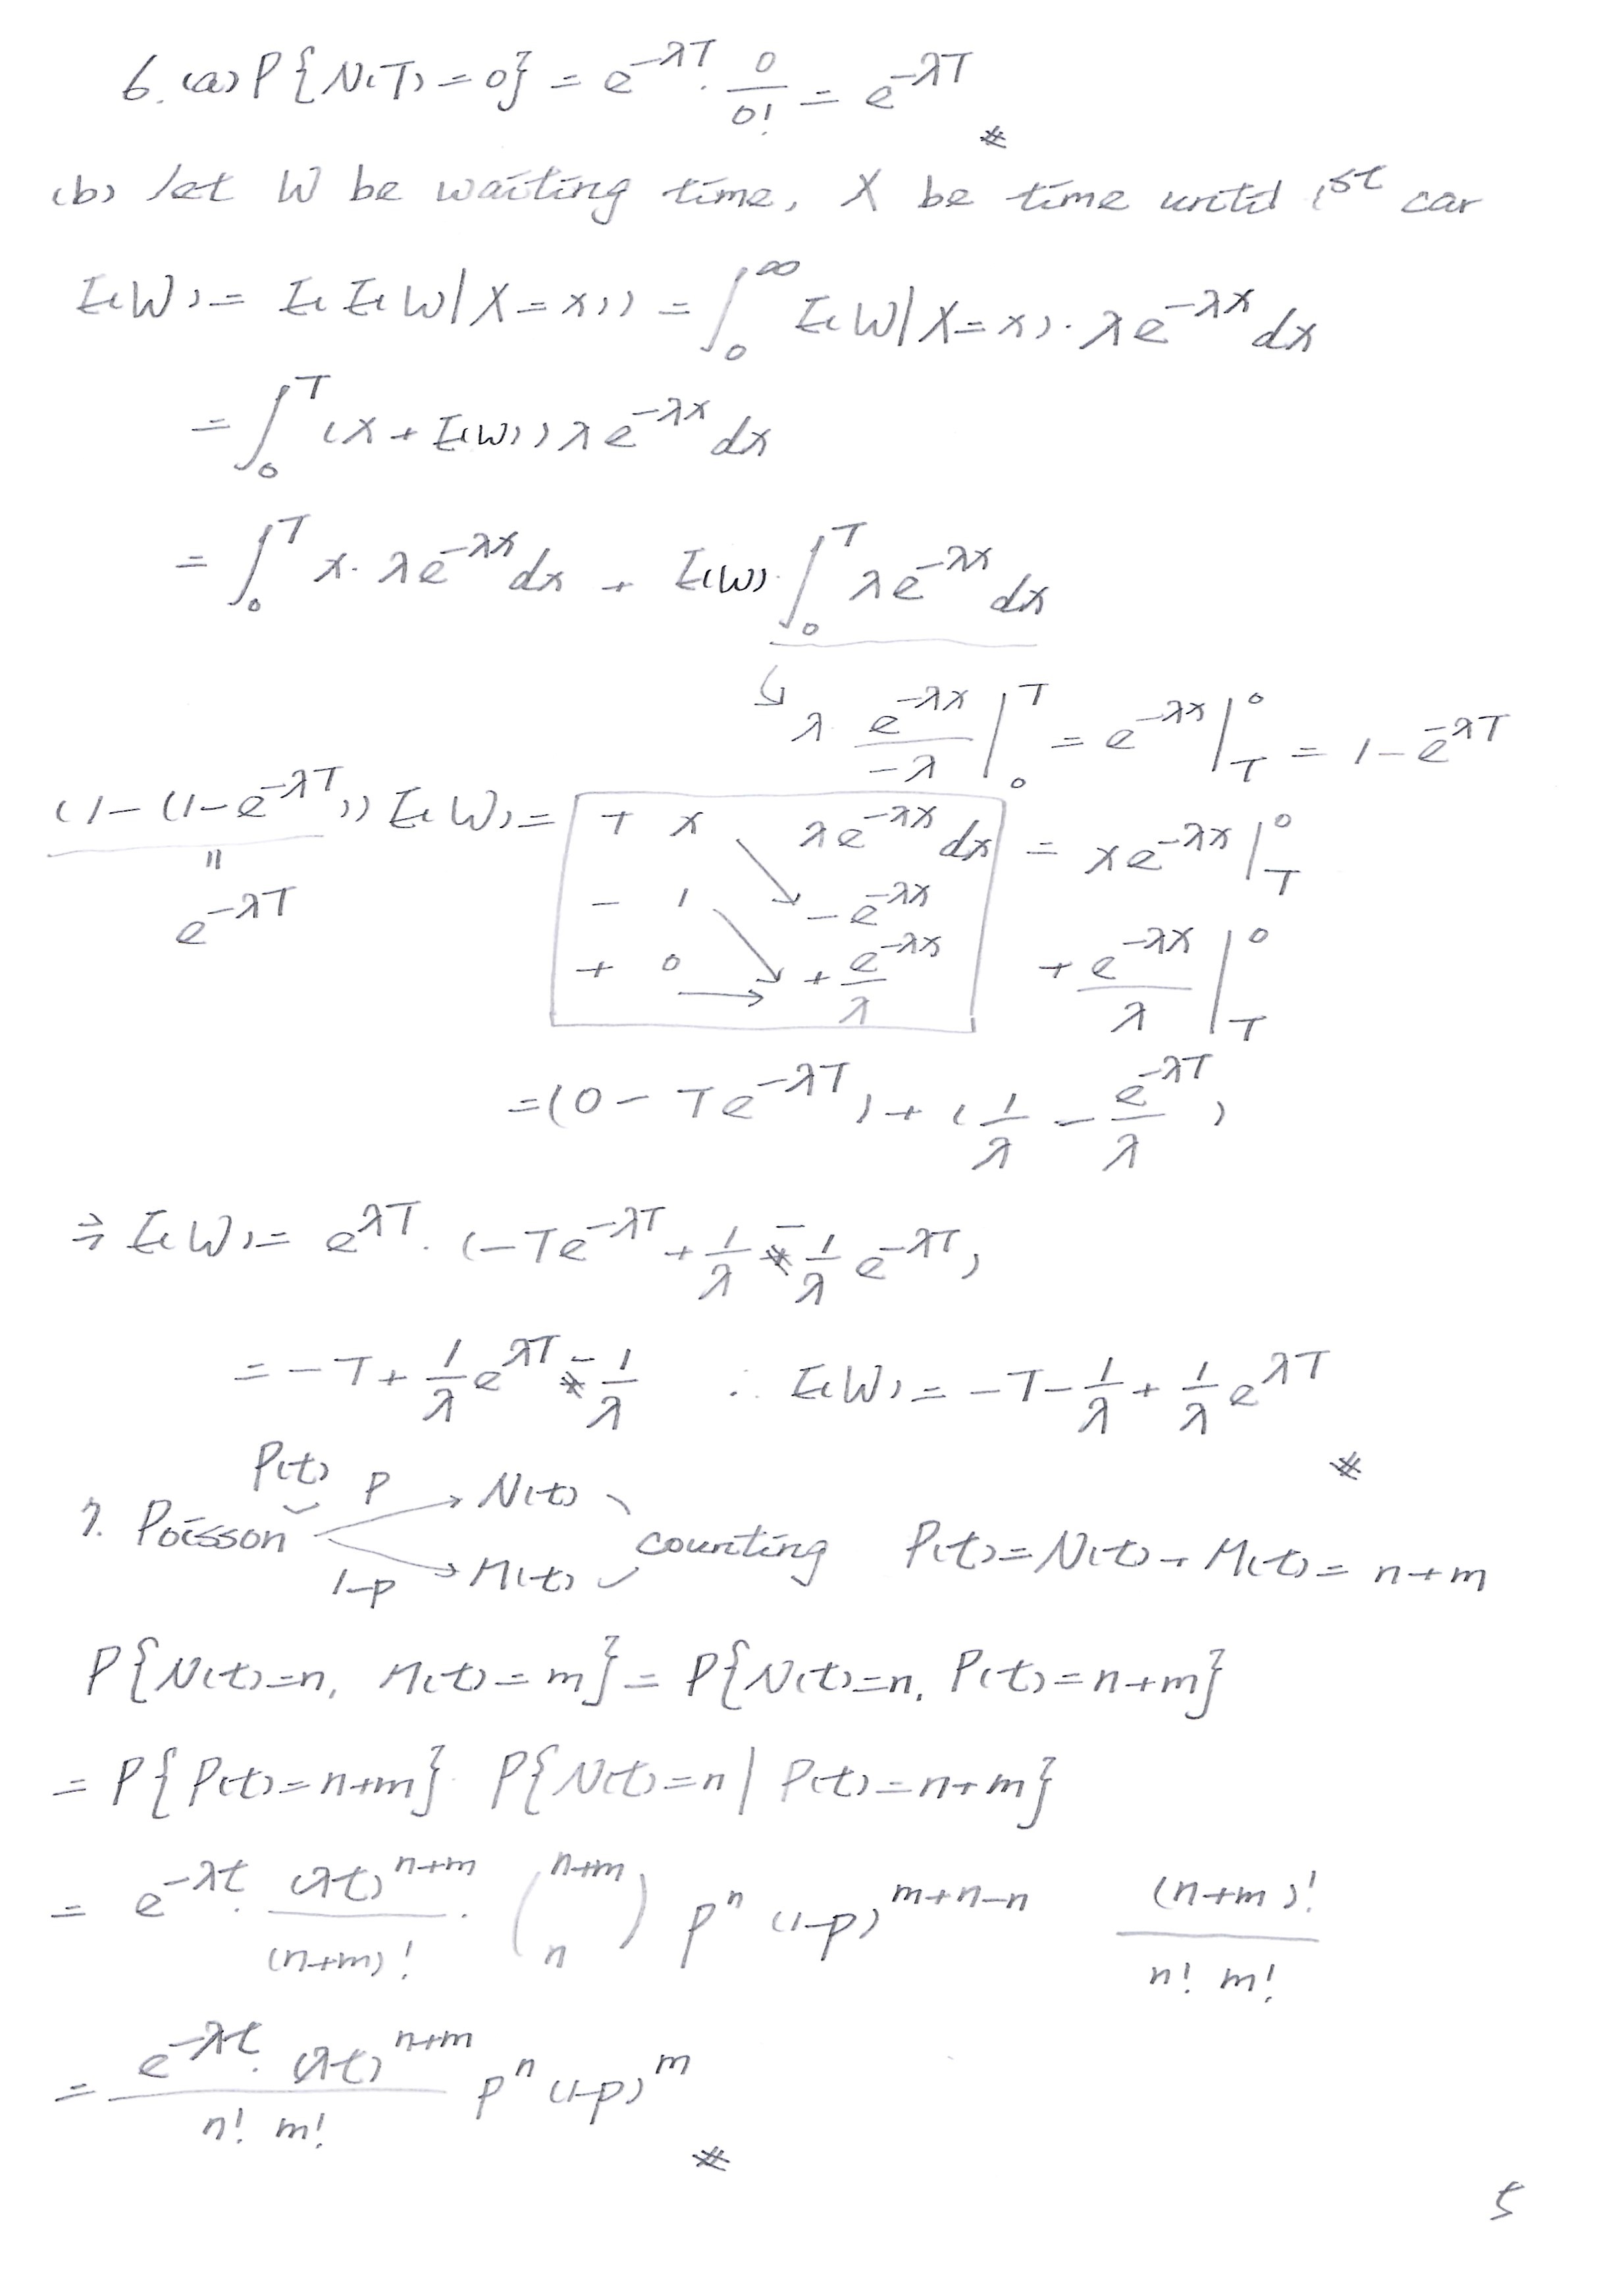 6. (a) P{N(T)=0} = e^{-λT} · \frac{0}{0!} = e^{-λT} #
(b) let W be waiting time, X be time until 1st car
E(W) = E(E(W|X=x)) = ∫_0^∞ E(W|X=x) · λe^{-λx} dx
= ∫_0^T (x + E(W)) λe^{-λx} dx
= ∫_0^T x · λe^{-λx} dx + E(W) · ∫_0^T λe^{-λx} dx
↳ λ \frac{e^{-λx}}{-λ} |_0^T = e^{-λx} |_T^0 = 1 - e^{-λT}
(1-(1-e^{-λT})) E(W) = + x λe^{-λx} dx = xe^{-λx} |_T^0
"
e^{-λT}
- 1 -e^{-λx}
+ 0 → + \frac{e^{-λx}}{λ} + \frac{e^{-λx}}{λ} |_T^0
= (0 - Te^{-λT}) + (\frac{1}{λ} - \frac{e^{-λT}}{λ})
⇒ E(W) = e^{λT} · (-Te^{-λT} + \frac{1}{λ} - \frac{1}{λ} e^{-λT})
= -T + \frac{1}{λ} e^{λT} - \frac{1}{λ} ∴ E(W) = -T - \frac{1}{λ} + \frac{1}{λ} e^{λT} #
P(t) p → N(t)
7. Poisson counting P(t) = N(t) + M(t) = n+m
1-p → M(t)
P{N(t)=n, M(t)=m} = P{N(t)=n, P(t)=n+m}
= P{P(t)=n+m} · P{N(t)=n | P(t)=n+m}
= e^{-λt} · \frac{(λt)^{n+m}}{(n+m)!} · \binom{n+m}{n} p^n (1-p)^{m+n-n} \frac{(n+m)!}{n! m!}
= \frac{e^{-λt} · (λt)^{n+m}}{n! m!} p^n (1-p)^m #
5